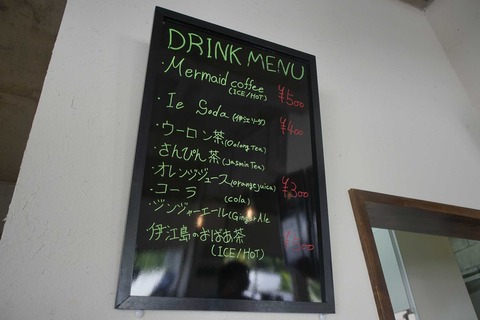 DRINK MENU
・Mermaid coffee
(ICE/HOT) ¥500
・Ie Soda (伊江ソーダ) ¥400
・ウーロン茶 (Oolong Tea)
・さんぴん茶 (Jasmin Tea)
・オレンジジュース (orange juica) ¥300
・コーラ (cola)
・ジンジャーエール (Ginger Ale
・伊江島のおばあ茶
(ICE/HOT)